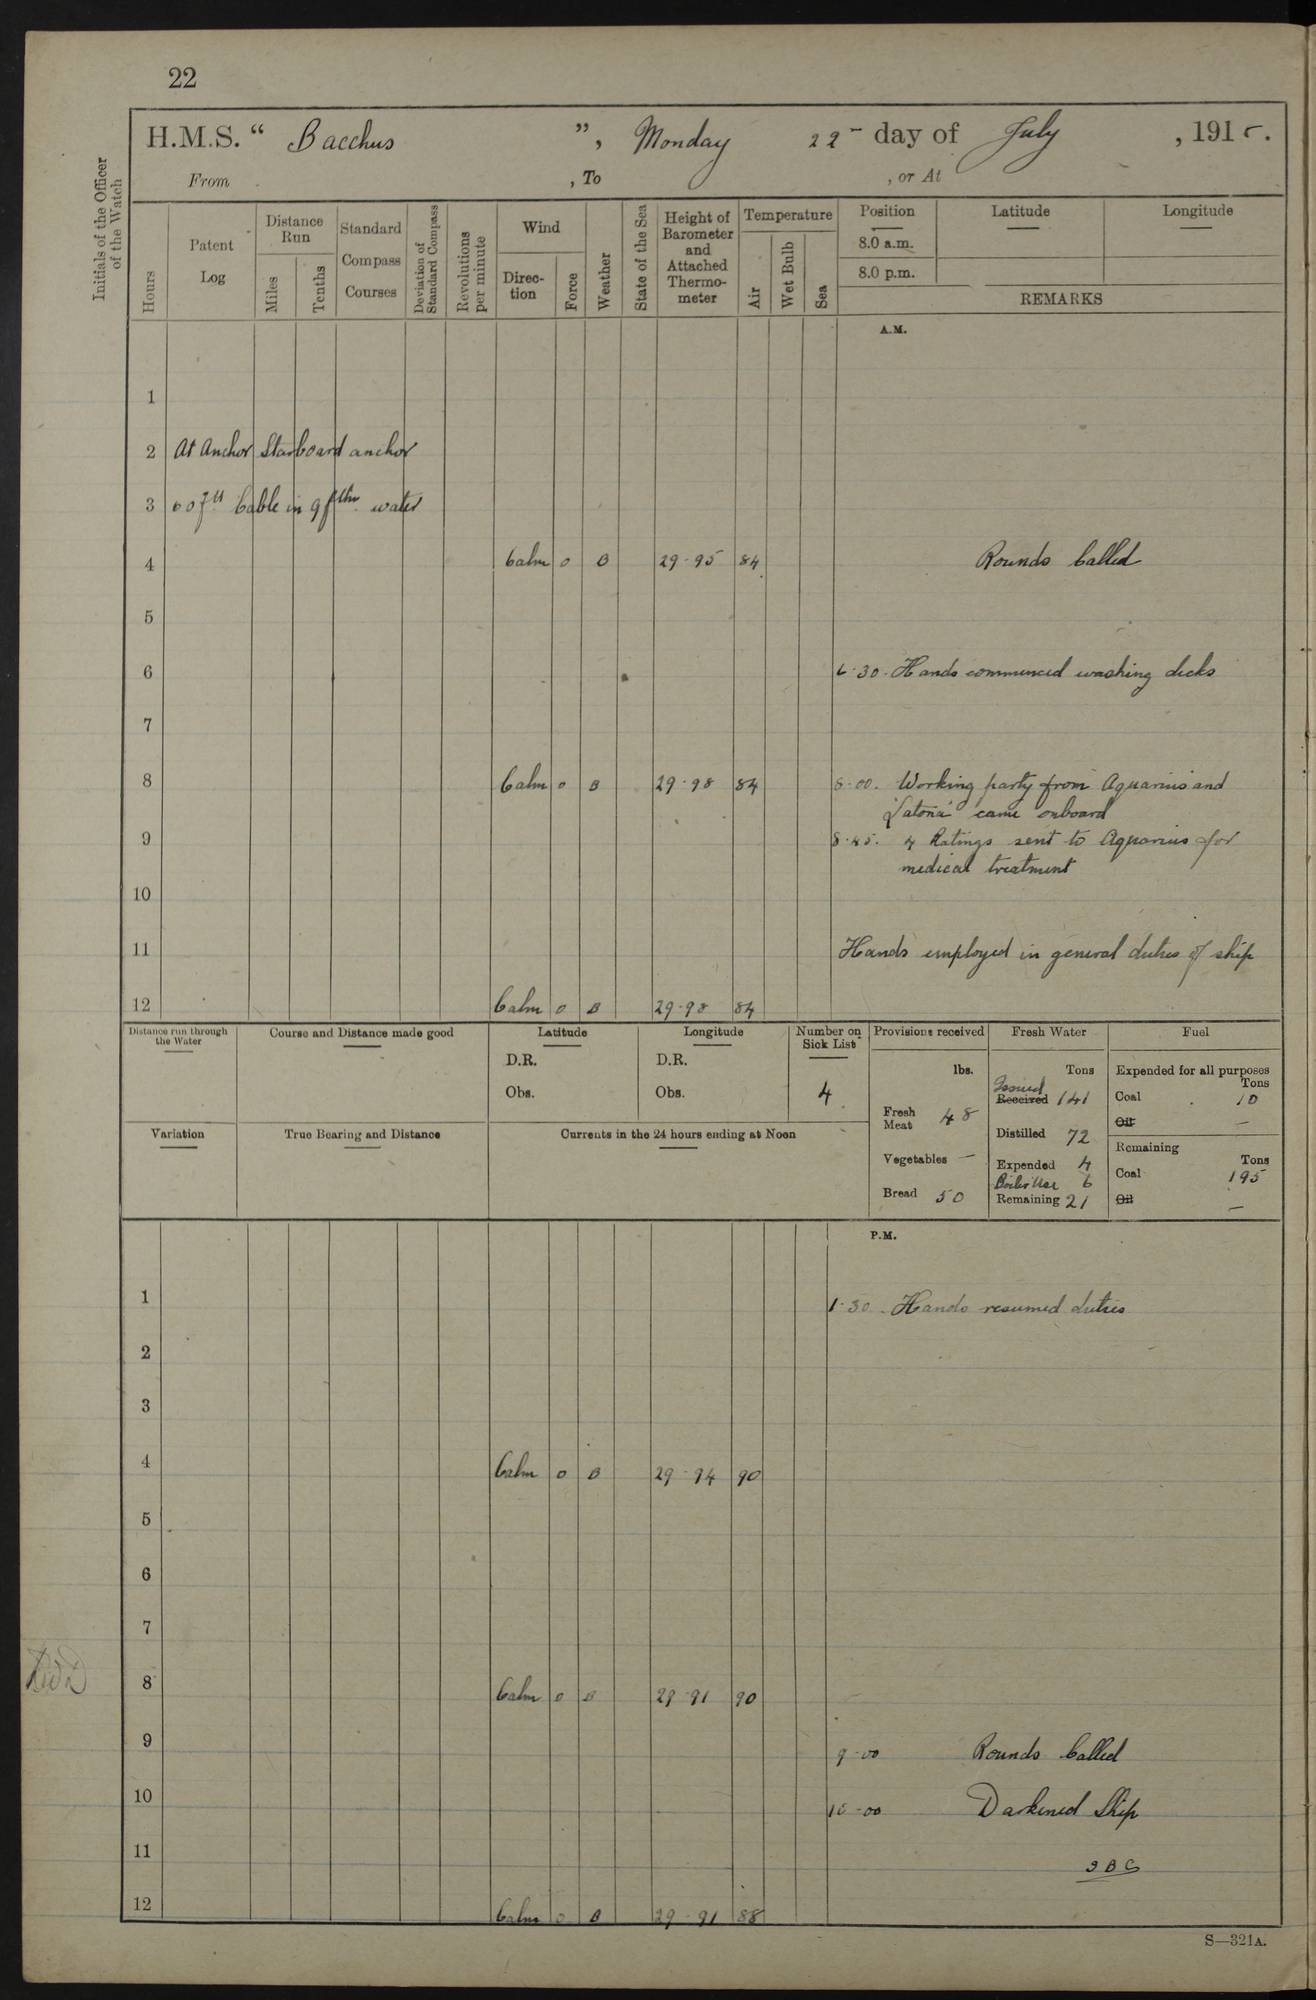 22
H.M.S. “ Bacchus ”, Monday 22 - day of July , 1915.
From , To , or At
Initials of the Officer of the Watch
Hours
Patent Log
Distance Run
Miles
Tenths
Standard Compass Courses
Deviation of Standard Compass
Revolutions per minute
Wind
Direc-tion
Force
Weather
State of the Sea
Height of Barometer and Attached Thermo-meter
Temperature
Air
Wet Bulb
Sea
Position Latitude Longitude
8.0 a.m.
8.0 p.m.
REMARKS
A.M.
1
2 At Anchor Starboard anchor
3 60 fth Cable in 9 fthm water
4 Calm 0 B 29-95 84 Rounds Called
5
6 6-30. Hands commenced washing decks
7
8 Calm 0 B 29-98 84 8-00. Working party from Aquarius and
'Latona' came onboard
9 8-45. 4 Ratings sent to Aquarius for
medical treatment
10
11 Hands employed in general duties of ship
12 Calm 0 B 29-98 84
Distance run through the Water
Course and Distance made good
Latitude
D.R.
Obs.
Longitude
D.R.
Obs.
Number on Sick List
4
Provisions received
lbs.
Fresh Meat 48
Vegetables —
Bread 50
Fresh Water
Tons
Issued
Received 141
Distilled 72
Expended 4
Boiler Use 6
Remaining 21
Fuel
Expended for all purposes
Tons
Coal 10
Oil —
Remaining
Tons
Coal 195
Oil —
Variation
True Bearing and Distance
Currents in the 24 hours ending at Noon
P.M.
1 1-30. Hands resumed duties
2
3
4 Calm 0 B 29-94 90
5
6
7
8 Calm 0 B 29-91 90
9 9-00 Rounds Called
10 10-00 Darkened Ship
11 JBC
12 Calm 0 B 29-91 88
S—321A.